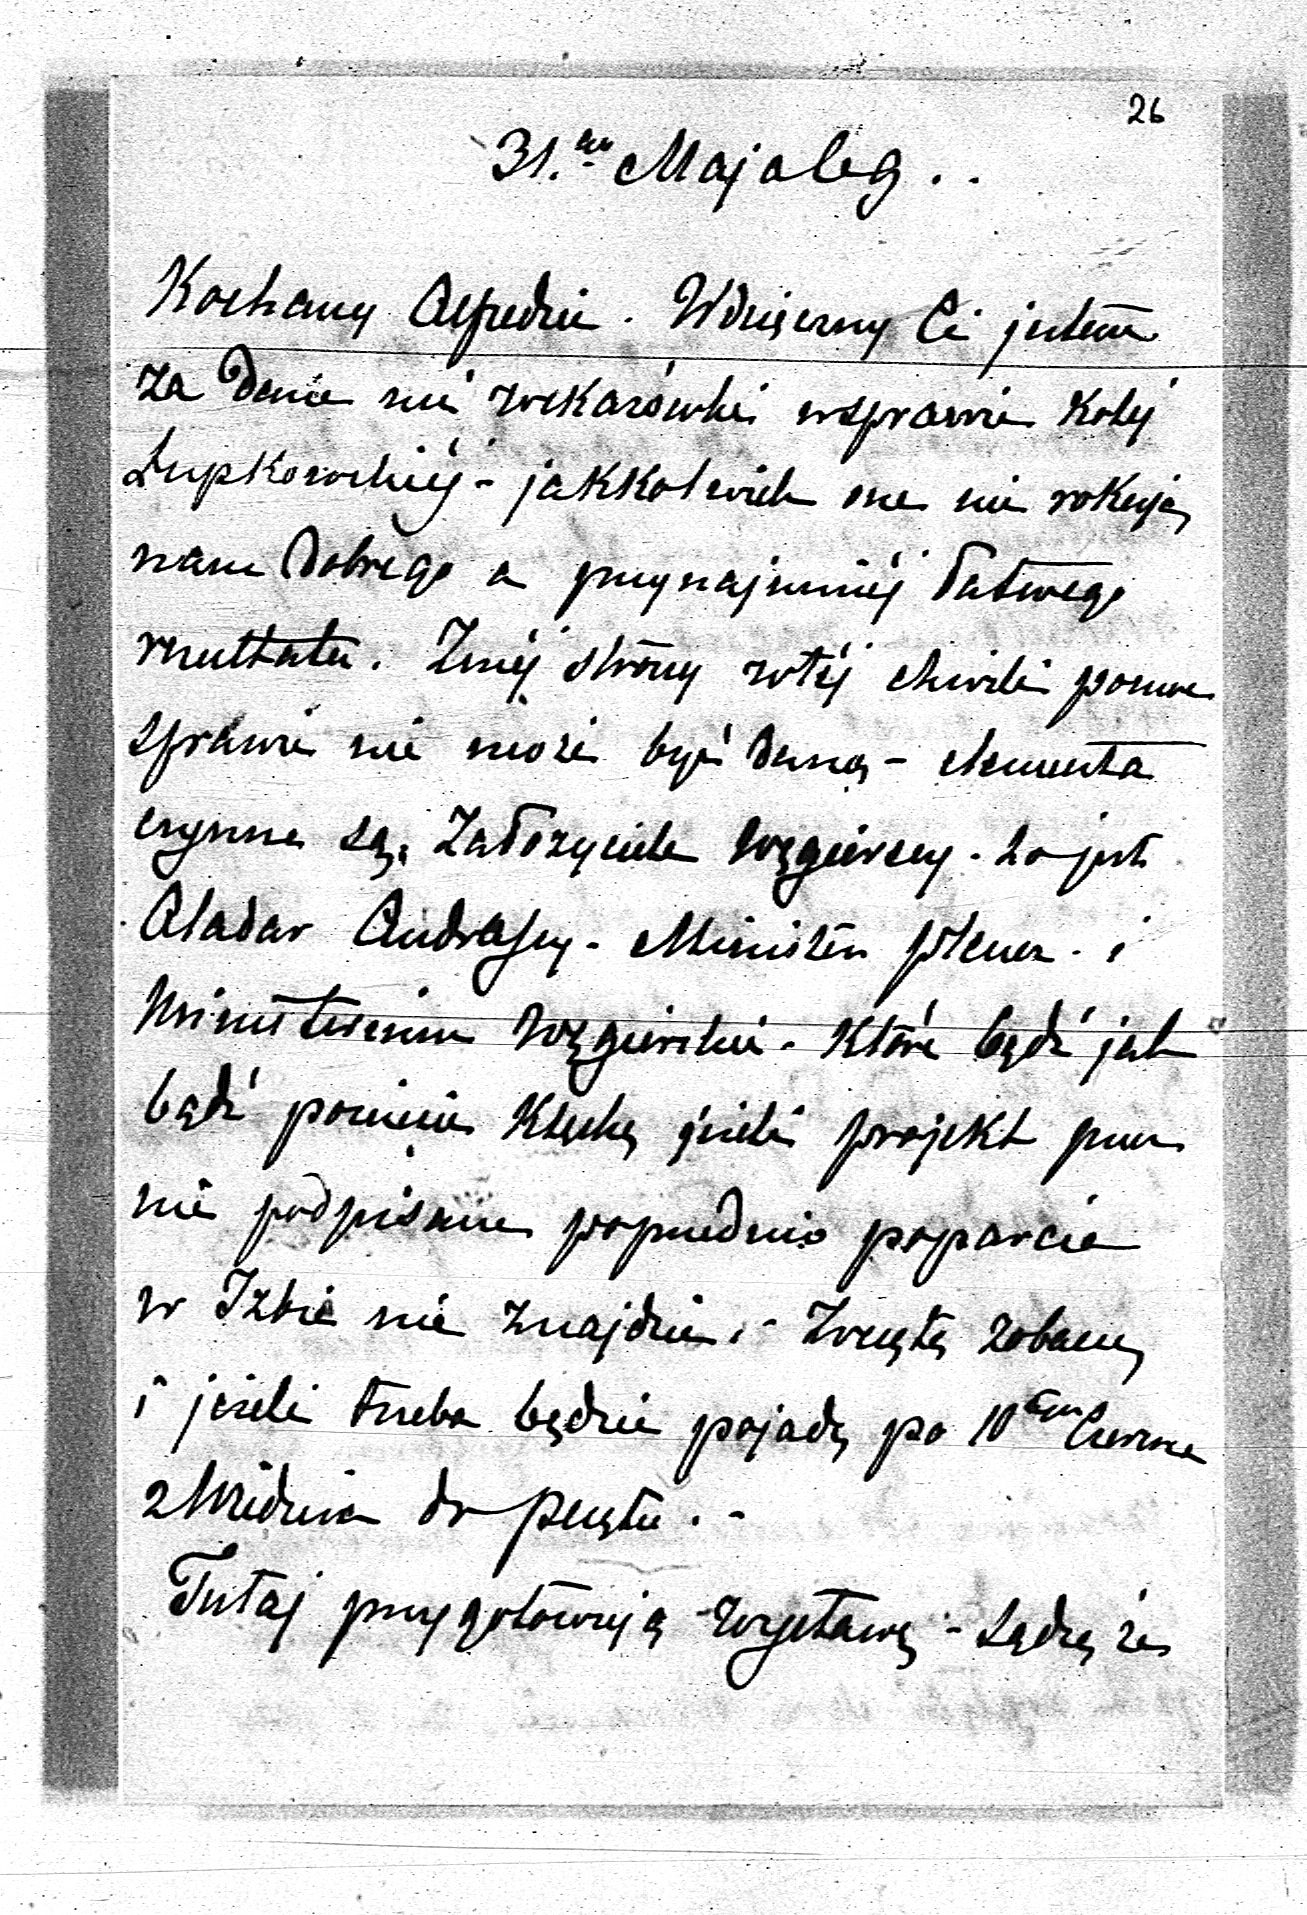 26
31. Maja 69..
Kochany Alfredzie. Wdzięczny Ci jestem
za dane mi wskazówki wsprawie Kolej
Łupkowskiéj - jakkolwiek one nie rokują
nam dobrego a przynajmniéj łatwego
rezultatu. Zméj strony wtéj chwili pomoc
sprawie nie może być daną - elementa
czynne są, Założyciele węgierscy - to jest
Aladar Andrassy - Minister
Ministerium Węgierskie - które bądź jak
bądź poniesie klęskę jeżeli projekt przez
nie podpisane poprzednio poparcie
w Izbie nie znajdzie. - Zresztą zobaczę
i jeżeli trzeba będzie pojadę po 10 Czerwca
z Wiédnia do Pesztu. -
Tutaj przygotowują wystawę - sądzę że